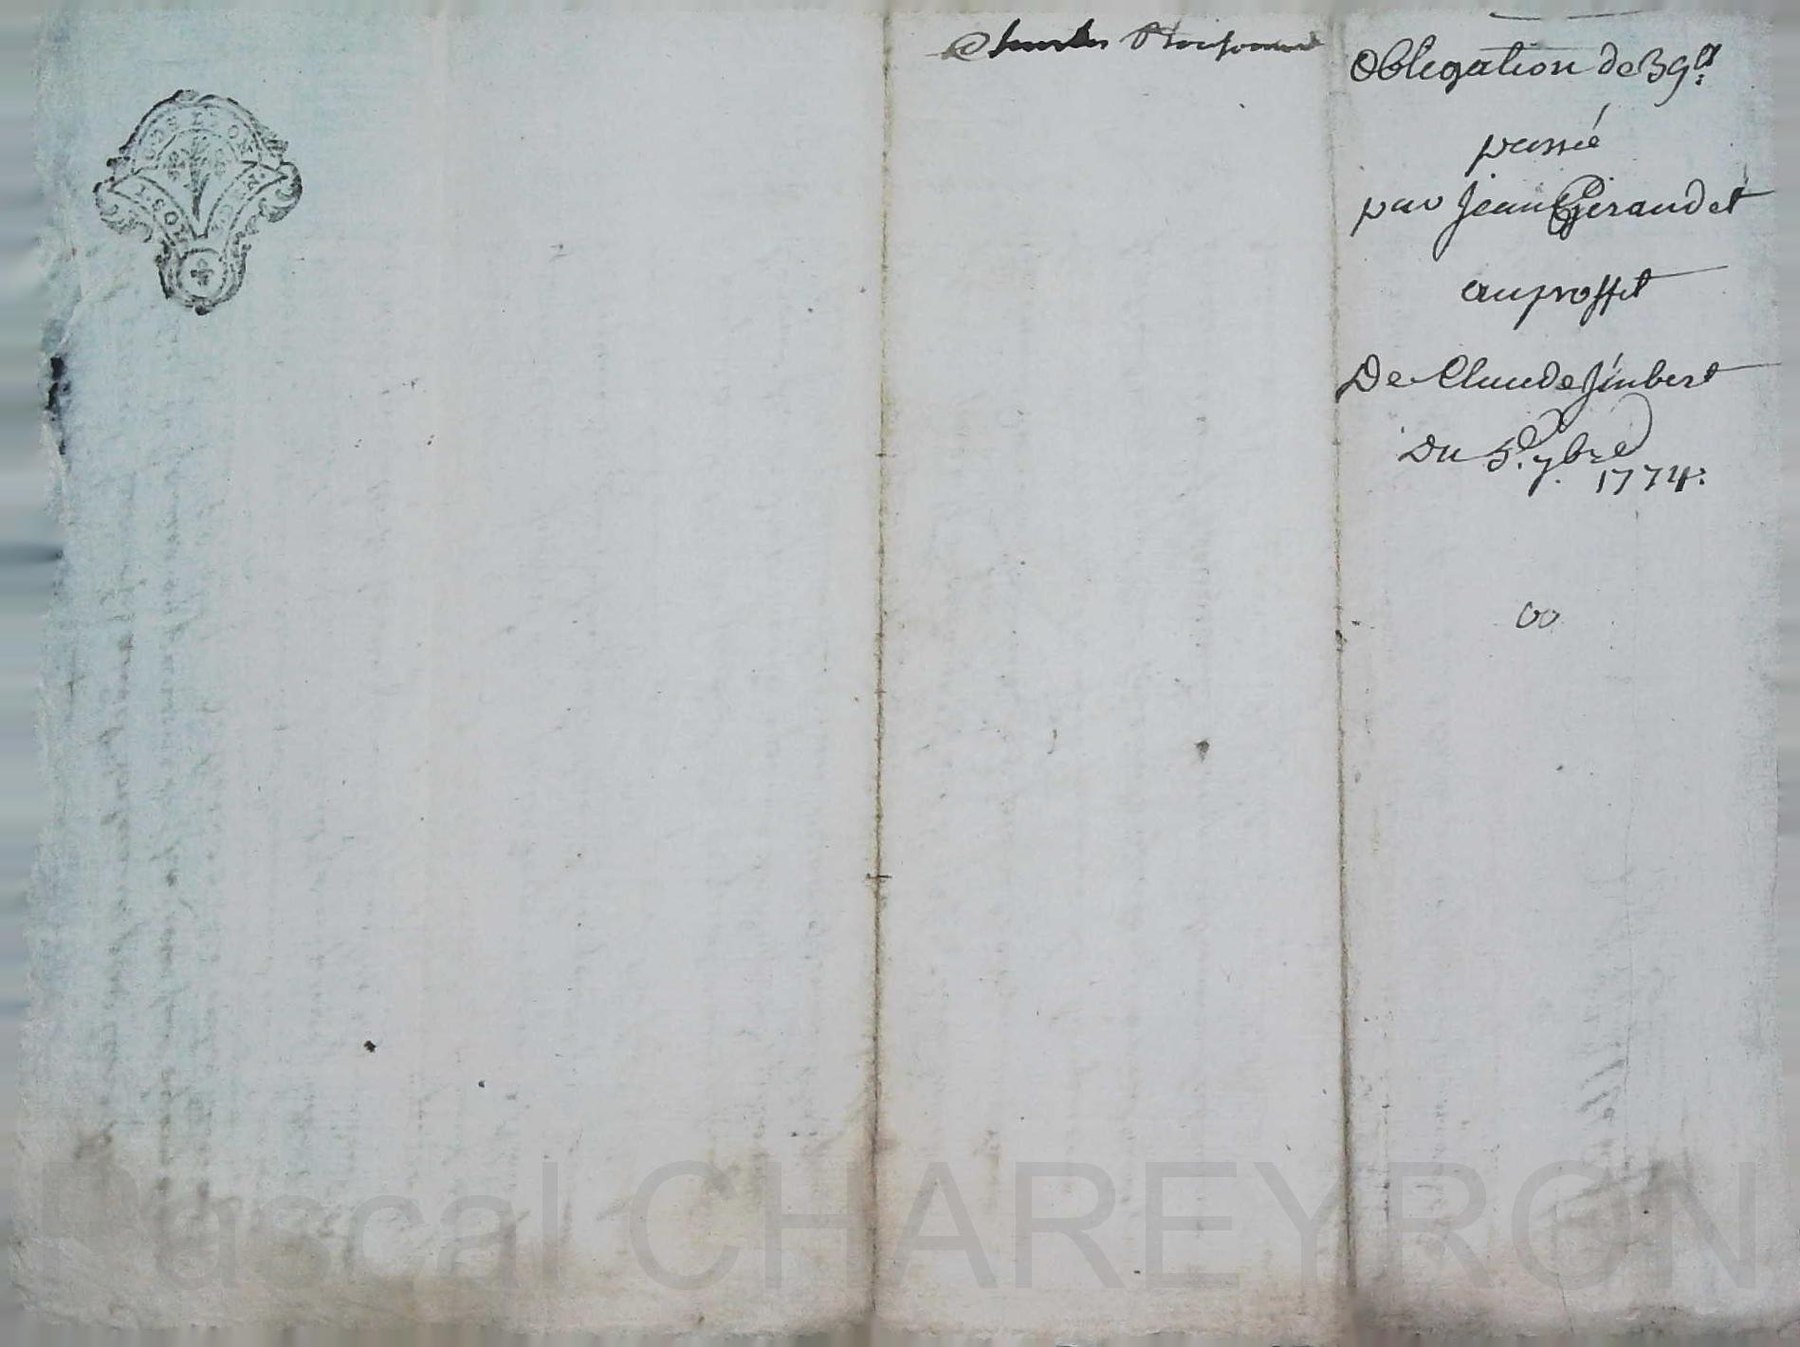 Charles
Obligation de 39ll:
passé
par Jean Geraudet
au proffit
De Claude Jinbert
Du 5e. 7bre
1774:
00
Pascal CHAREYRON